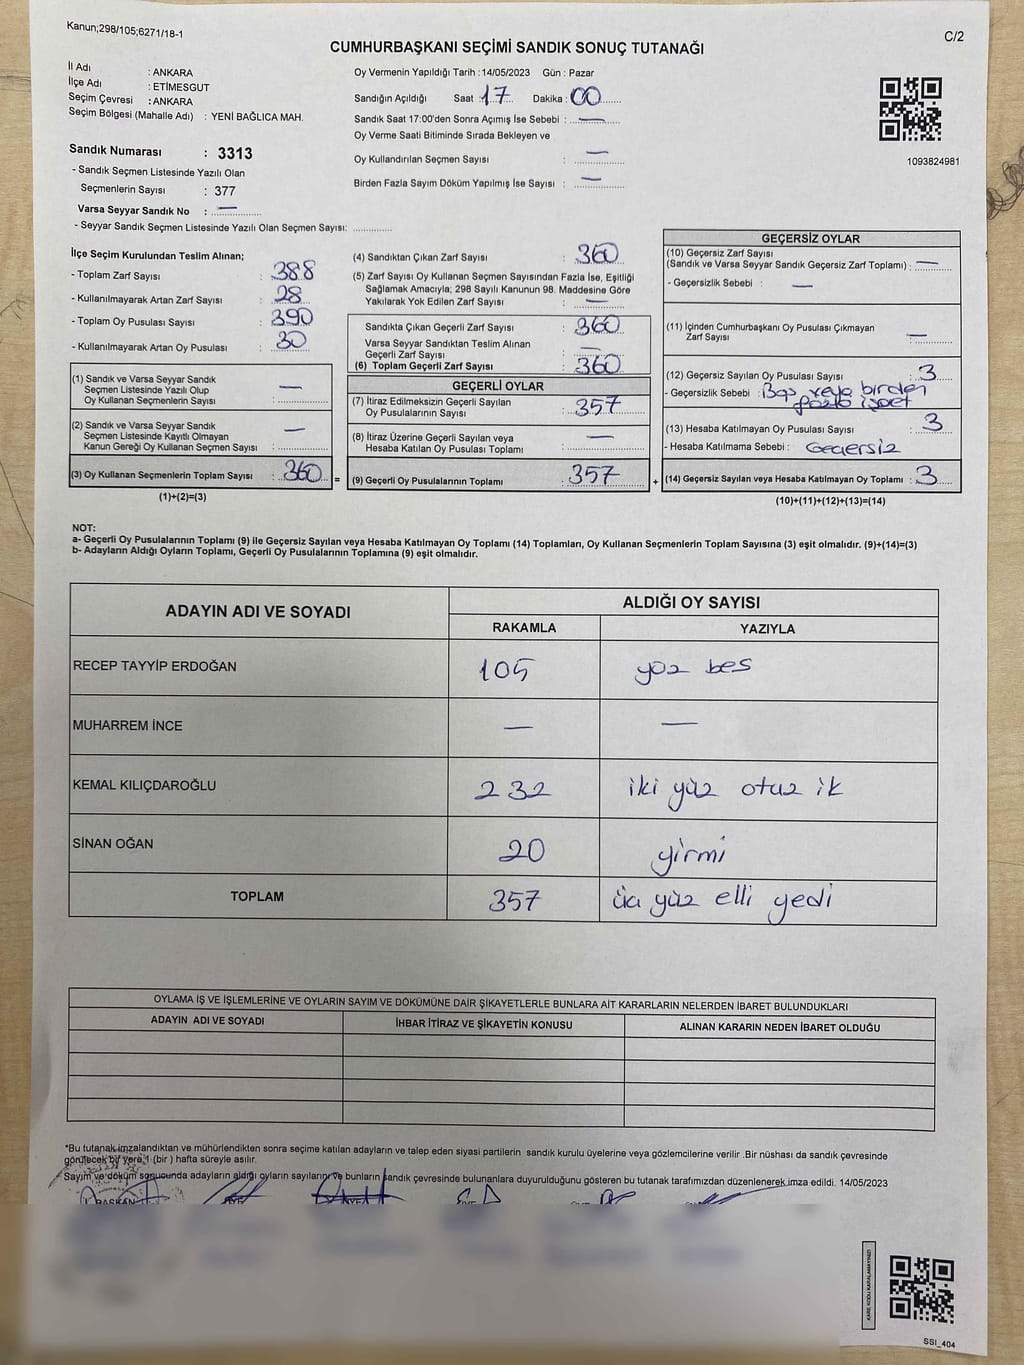 Kanun;298/105;6271/18-1
C/2
CUMHURBAŞKANI SEÇİMİ SANDIK SONUÇ TUTANAĞI
İl Adı : ANKARA
İlçe Adı : ETİMESGUT
Seçim Çevresi : ANKARA
Seçim Bölgesi (Mahalle Adı) : YENİ BAĞLICA MAH.
Sandık Numarası : 3313
- Sandık Seçmen Listesinde Yazılı Olan
Seçmenlerin Sayısı : 377
Varsa Seyyar Sandık No : —
- Seyyar Sandık Seçmen Listesinde Yazılı Olan Seçmen Sayısı: ..............
Oy Vermenin Yapıldığı Tarih :14/05/2023 Gün : Pazar
Sandığın Açıldığı Saat :17 Dakika :00
Sandık Saat 17:00'den Sonra Açımış İse Sebebi : —
Oy Verme Saati Bitiminde Sırada Bekleyen ve
Oy Kullandırılan Seçmen Sayısı : —
Birden Fazla Sayım Döküm Yapılmış İse Sayısı : —
1093824981
İlçe Seçim Kurulundan Teslim Alınan;
- Toplam Zarf Sayısı : 388
- Kullanılmayarak Artan Zarf Sayısı : 28
- Toplam Oy Pusulası Sayısı : 390
- Kullanılmayarak Artan Oy Pusulası : 30
(1) Sandık ve Varsa Seyyar Sandık
Seçmen Listesinde Yazılı Olup
Oy Kullanan Seçmenlerin Sayısı : —
(2) Sandık ve Varsa Seyyar Sandık
Seçmen Listesinde Kayıtlı Olmayan
Kanun Gereği Oy Kullanan Seçmen Sayısı : —
(3) Oy Kullanan Seçmenlerin Toplam Sayısı : 360 =
(1)+(2)=(3)
(4) Sandıktan Çıkan Zarf Sayısı : 360
(5) Zarf Sayısı Oy Kullanan Seçmen Sayısından Fazla İse, Eşitliği
Sağlamak Amacıyla; 298 Sayılı Kanunun 98. Maddesine Göre
Yakılarak Yok Edilen Zarf Sayısı : —
Sandıkta Çıkan Geçerli Zarf Sayısı : 360
Varsa Seyyar Sandıktan Teslim Alınan
Geçerli Zarf Sayısı : —
(6) Toplam Geçerli Zarf Sayısı : 360
GEÇERLİ OYLAR
(7) İtiraz Edilmeksizin Geçerli Sayılan
Oy Pusulalarının Sayısı : 357
(8) İtiraz Üzerine Geçerli Sayılan veya
Hesaba Katılan Oy Pusulası Toplamı : —
(9) Geçerli Oy Pusulalarının Toplamı : 357 +
GEÇERSİZ OYLAR
(10) Geçersiz Zarf Sayısı
(Sandık ve Varsa Seyyar Sandık Geçersiz Zarf Toplamı) : —
- Geçersizlik Sebebi : —
(11) İçinden Cumhurbaşkanı Oy Pusulası Çıkmayan
Zarf Sayısı : —
(12) Geçersiz Sayılan Oy Pusulası Sayısı : 3
- Geçersizlik Sebebi : Boş veya birden
fazla işaret
(13) Hesaba Katılmayan Oy Pusulası Sayısı : 3
- Hesaba Katılmama Sebebi : Geçersiz
(14) Geçersiz Sayılan veya Hesaba Katılmayan Oy Toplamı : 3
(10)+(11)+(12)+(13)=(14)
NOT:
a- Geçerli Oy Pusulalarının Toplamı (9) ile Geçersiz Sayılan veya Hesaba Katılmayan Oy Toplamı (14) Toplamları, Oy Kullanan Seçmenlerin Toplam Sayısına (3) eşit olmalıdır. (9)+(14)=(3)
b- Adayların Aldığı Oyların Toplamı, Geçerli Oy Pusulalarının Toplamına (9) eşit olmalıdır.
ADAYIN ADI VE SOYADI
ALDIĞI OY SAYISI
RAKAMLA YAZIYLA
RECEP TAYYİP ERDOĞAN 105 yüz bes
MUHARREM İNCE — —
KEMAL KILIÇDAROĞLU 232 iki yüz otuz ik
SİNAN OĞAN 20 yirmi
TOPLAM 357 üç yüz elli yedi
OYLAMA İŞ VE İŞLEMLERİNE VE OYLARIN SAYIM VE DÖKÜMÜNE DAİR ŞİKAYETLERLE BUNLARA AİT KARARLARIN NELERDEN İBARET BULUNDUKLARI
ADAYIN ADI VE SOYADI İHBAR İTİRAZ VE ŞİKAYETİN KONUSU ALINAN KARARIN NEDEN İBARET OLDUĞU
*Bu tutanak imzalandıktan ve mühürlendikten sonra seçime katılan adayların ve talep eden siyasi partilerin sandık kurulu üyelerine veya gözlemcilerine verilir .Bir nüshası da sandık çevresinde
görülecek bir yere 1 (bir ) hafta süreyle asılır.
Sayım ve döküm sonucunda adayların aldığı oyların sayılarını ve bunların sandık çevresinde bulunanlara duyurulduğunu gösteren bu tutanak tarafımızdan düzenlenerek imza edildi. 14/05/2023
BAŞKAN ÜYE ÜYE ÜYE ÜYE
KARE KODU KARALAMAYINIZ!
SSI_404